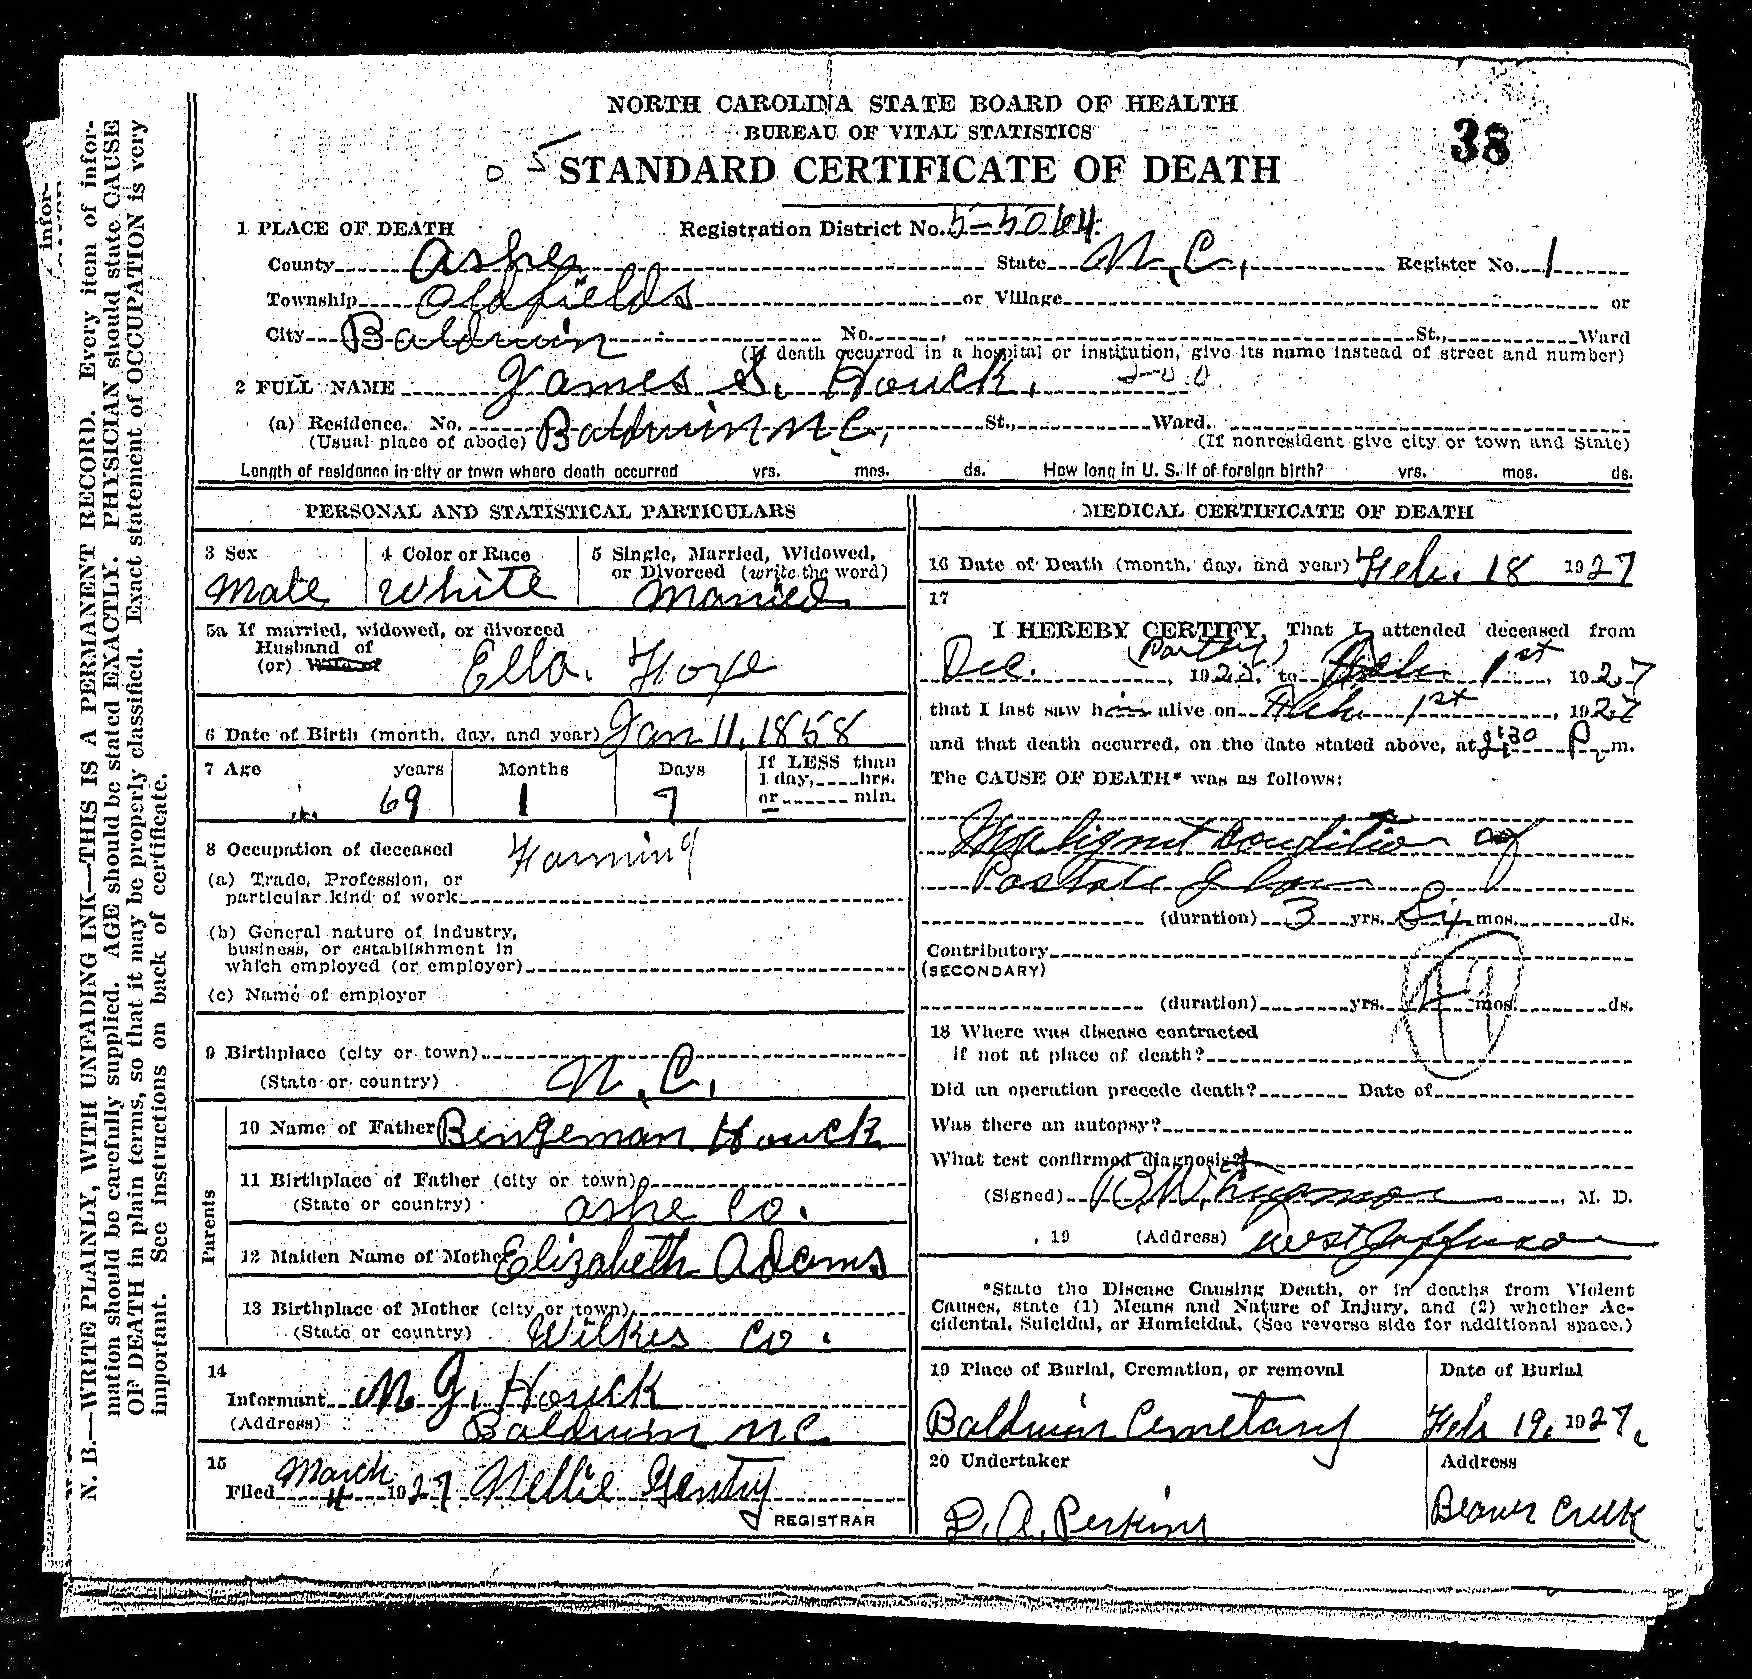 NORTH CAROLINA STATE BOARD OF HEALTH
BUREAU OF VITAL STATISTICS
38
STANDARD CERTIFICATE OF DEATH
1 PLACE OF DEATH Registration District No. 5-5064
County Ashe State N.C. Register No. 1
Township Oldfields or Village or
City Baldwin No. , St., Ward
(If death occurred in a hospital or institution, give its name instead of street and number)
2 FULL NAME James S. Houck.
(a) Residence. No. Baldwin N.C. St., Ward.
(Usual place of abode) (If nonresident give city or town and State)
Length of residence in city or town where death occurred yrs. mos. ds. How long in U. S. If of foreign birth? yrs. mos. ds.
PERSONAL AND STATISTICAL PARTICULARS
3 Sex 4 Color or Race 5 Single, Married, Widowed,
or Divorced (write the word)
Male White Married
5a If married, widowed, or divorced
Husband of
(or) Wife of Ella
6 Date of Birth (month, day, and year) Jan 11, 1858
7 Age years Months Days If LESS than
1 day, hrs.
or min.
69 1 7
8 Occupation of deceased Farming
(a) Trade, Profession, or
particular kind of work
(b) General nature of industry,
business, or establishment in
which employed (or employer)
(c) Name of employer
9 Birthplace (city or town)
(State or country) N.C.
Parents
10 Name of Father Bingeman Houck
11 Birthplace of Father (city or town)
(State or country) Ashe Co.
12 Maiden Name of Mother Elizabeth Adams
13 Birthplace of Mother (city or town)
(State or country) Wilkes Co.
14
Informant M. G. Houck
(Address) Baldwin N.C.
15
Filed March 4 1927 Nellie Gentry
REGISTRAR
MEDICAL CERTIFICATE OF DEATH
16 Date of Death (month, day, and year) Feb. 18 1927
17
I HEREBY CERTIFY, That I attended deceased from
Dec. , 192 to Feb 1st, 1927
that I last saw him alive on Feb 1st, 1927
and that death occurred, on the date stated above, at P m.
The CAUSE OF DEATH* was as follows:
Malignut Condition of
Postate
(duration) 3 yrs. Six mos. ds.
Contributory
(SECONDARY)
(duration) yrs. mos. ds.
49
18 Where was disease contracted
if not at place of death?
Did an operation precede death? Date of
Was there an autopsy?
What test confirmed diagnosis?
(Signed) , M. D.
, 19 (Address) West Jefferson
*State the Disease Causing Death, or in deaths from Violent
Causes, state (1) Means and Nature of Injury, and (2) whether Ac-
cidental, Suicidal, or Homicidal. (See reverse side for additional space.)
19 Place of Burial, Cremation, or removal Date of Burial
Baldwin Cemetary Feb 19, 1927.
20 Undertaker Address
D. A. Perkins Beaver Creek
N. B.—WRITE PLAINLY, WITH UNFADING INK—THIS IS A PERMANENT RECORD. Every item of infor-
mation should be carefully supplied. AGE should be stated EXACTLY. PHYSICIAN should state CAUSE
OF DEATH in plain terms, so that it may be properly classified. Exact statement of OCCUPATION is very
important. See instructions on back of certificate.